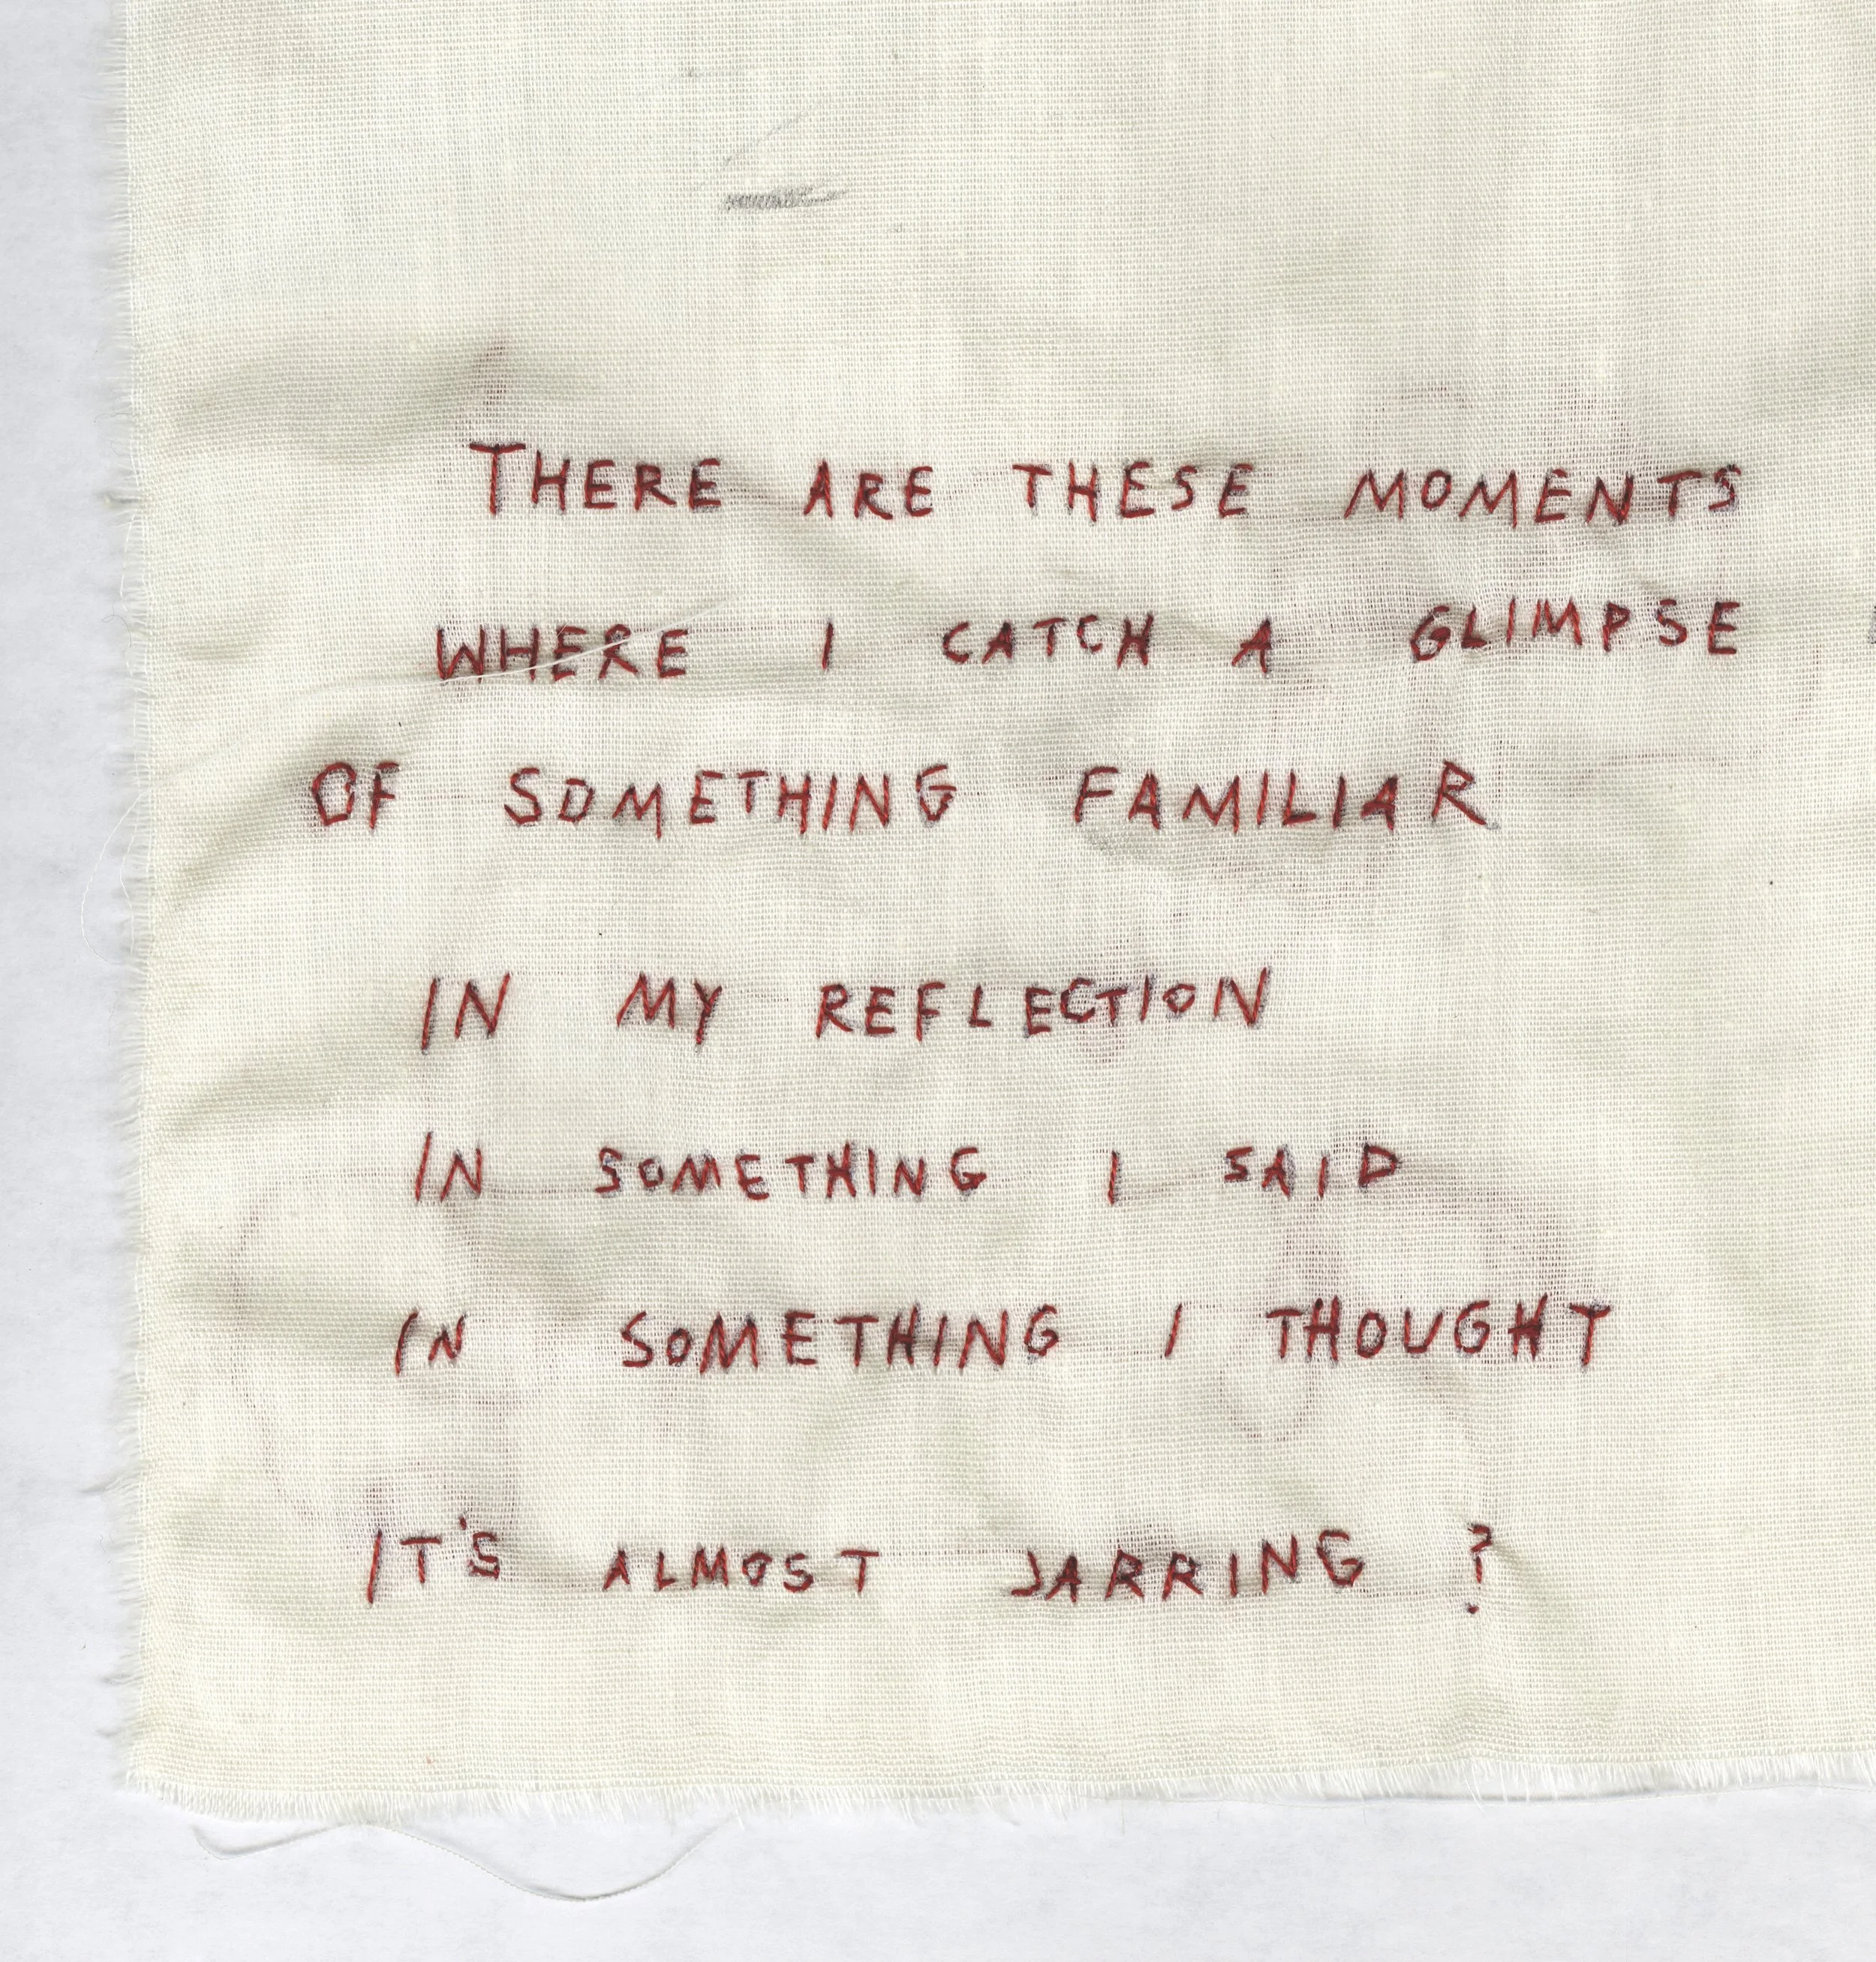 THERE ARE THESE MOMENTS
WHERE I CATCH A GLIMPSE
OF SOMETHING FAMILIAR
IN MY REFLECTION
IN SOMETHING I SAID
IN SOMETHING I THOUGHT
IT'S ALMOST JARRING ?